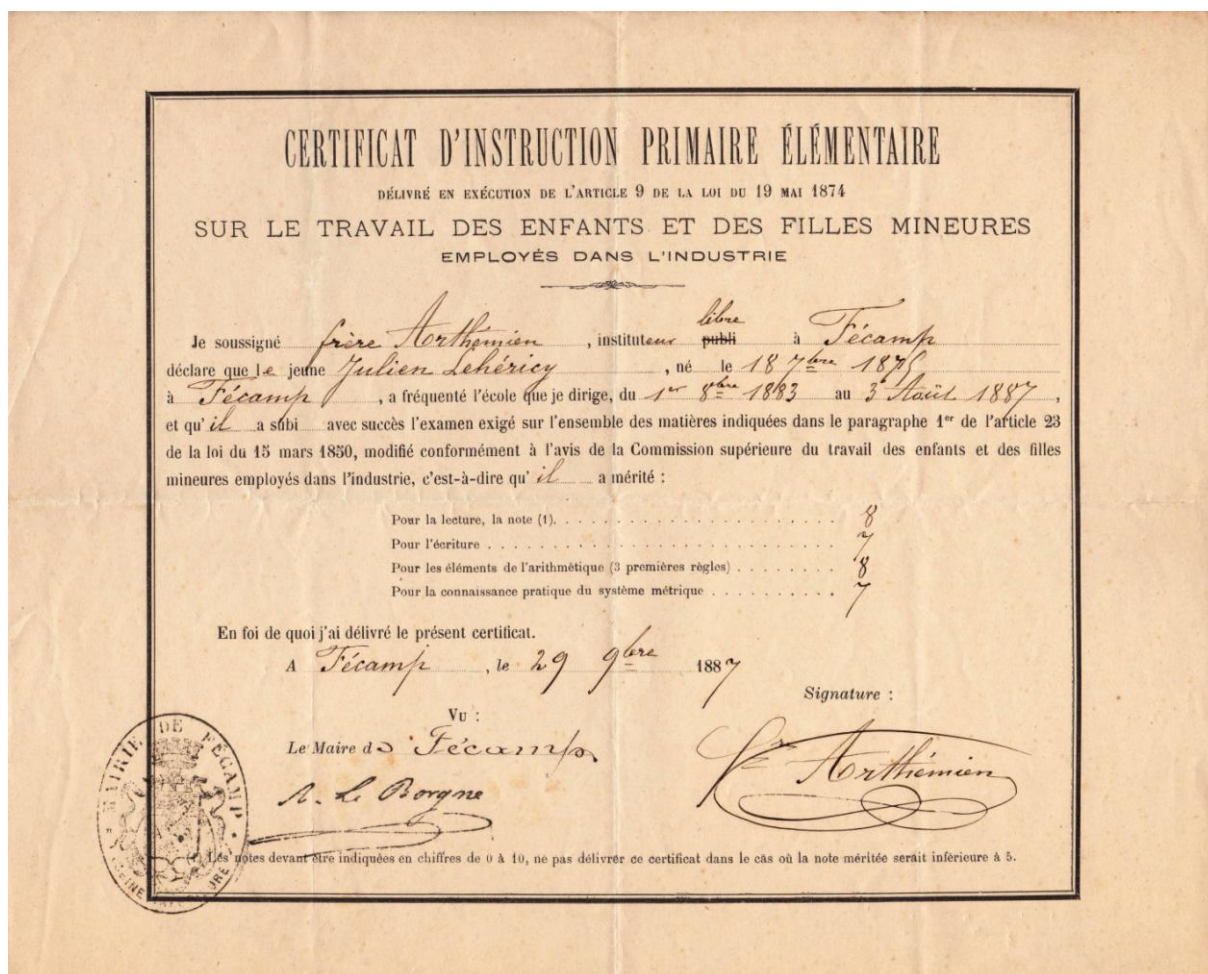 CERTIFICAT D'INSTRUCTION PRIMAIRE ÉLÉMENTAIRE
DÉLIVRÉ EN EXÉCUTION DE L'ARTICLE 9 DE LA LOI DU 19 MAI 1874
SUR LE TRAVAIL DES ENFANTS ET DES FILLES MINEURES
EMPLOYÉS DANS L'INDUSTRIE
libre
Je soussigné frère Arthémien, instituteur publi à Fécamp
déclare que le jeune Julien Lehéricy, né le 18 7bre 1875
à Fécamp, a fréquenté l'école que je dirige, du 1er 8bre 1883 au 3 Août 1887,
et qu'il a subi avec succès l'examen exigé sur l'ensemble des matières indiquées dans le paragraphe 1er de l'article 23
de la loi du 15 mars 1850, modifié conformément à l'avis de la Commission supérieure du travail des enfants et des filles
mineures employés dans l'industrie, c'est-à-dire qu'il a mérité :
Pour la lecture, la note (1). . . . . . . . . . . . . . . . . . . . . . 8
Pour l'écriture . . . . . . . . . . . . . . . . . . . . . . . . . . . 7
Pour les éléments de l'arithmétique (3 premières règles) . . . . . . . . 8
Pour la connaissance pratique du système métrique . . . . . . . . . . 7
En foi de quoi j'ai délivré le présent certificat.
A Fécamp, le 29 9bre 1887
Signature :
Vu :
Le Maire de Fécamp
A. Le Borgne
Fr Arthémien
MAIRIE DE FÉCAMP
SEINE INFÉRIEURE
(1) Les notes devant être indiquées en chiffres de 0 à 10, ne pas délivrer ce certificat dans le cas où la note méritée serait inférieure à 5.